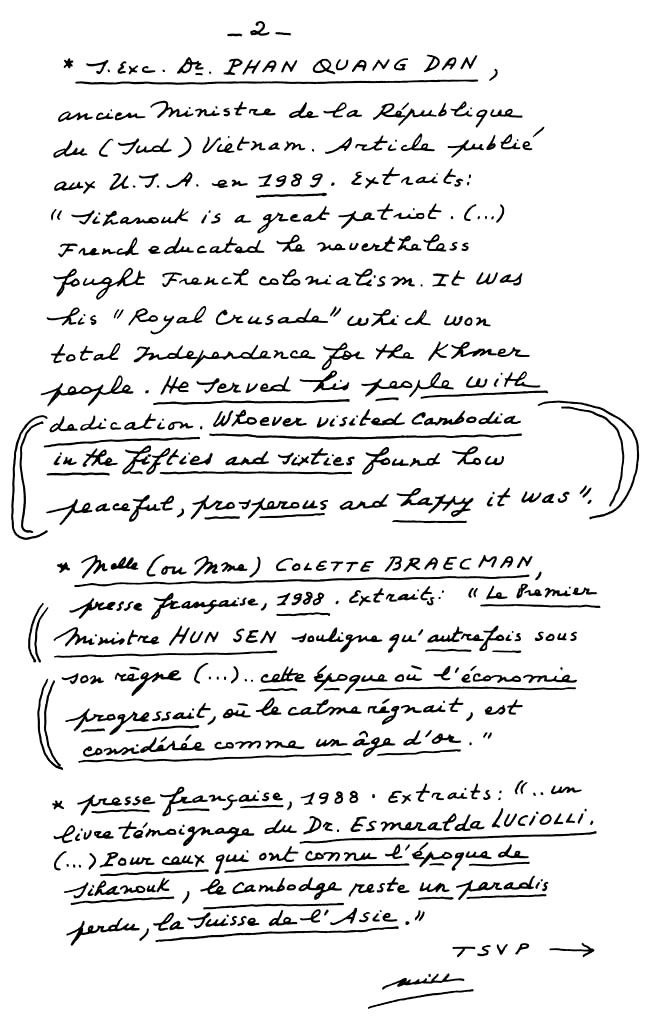 - 2 -
* S. Exc. Dr. PHAN QUANG DAN,
ancien Ministre de la République
du (Sud) Vietnam. Article publié
aux U.S.A. en 1989. Extraits:
"Sihanouk is a great patriot. (...)
French educated he nevertheless
fought French colonialism. It was
his "Royal Crusade" which won
total Independence for the Khmer
people. He served his people with
dedication. Whoever visited Cambodia
in the fifties and sixties found how
peaceful, prosperous and happy it was".
* Melle (ou Mme) COLETTE BRAECMAN,
presse française, 1988. Extraits: "Le Premier
Ministre HUN SEN souligne qu'autrefois sous
son règne (...).. cette époque où l'économie
progressait, où le calme régnait, est
considérée comme un âge d'or."
* presse française, 1988. Extraits: "..un
livre témoignage du Dr. Esmeralda LUCIOLLI.
(...) Pour ceux qui ont connu l'époque de
Sihanouk, le Cambodge reste un paradis
perdu, la Suisse de l'Asie."
TSVP →